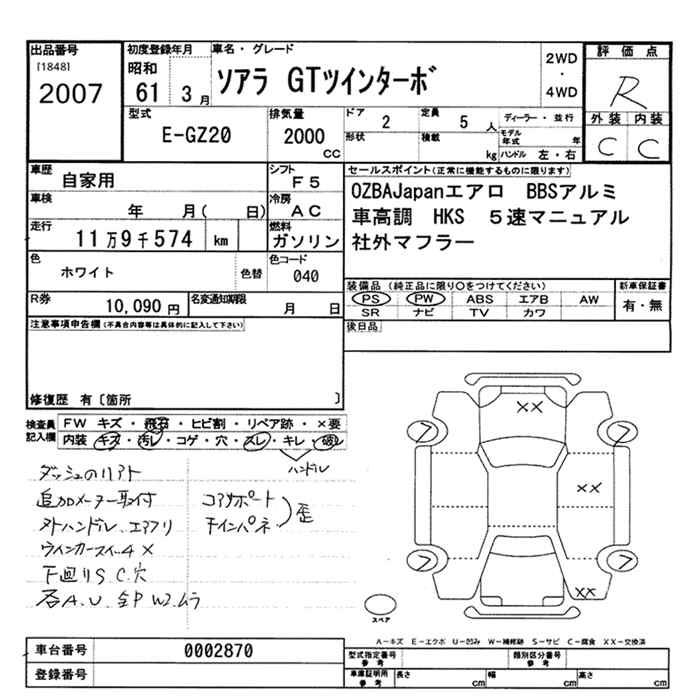 出品番号
[1848]
2007
初度登録年月
昭和
61 3月
車名・グレード
ソアラ GTツインターボ
2WD
・
4WD
評価点
R
外装 内装
C C
型式
E-GZ20
排気量
2000
CC
ドア 2
定員 5人
ディーラー・並行
形状
積載 kg
モデル年式 年
ハンドル 左・右
車歴
自家用
シフト
F5
セールスポイント(正常に機能するものに限ります)
OZBAJapanエアロ BBSアルミ
車高調 HKS 5速マニュアル
社外マフラー
車検
年 月( 日)
冷房
AC
走行
11万9千574 km
燃料
ガソリン
色
ホワイト
色替
色コード
040
装備品(純正品に限り〇をつけてください)
PS PW ABS エアB AW
SR ナビ TV カワ
新車保証書
有・無
R券
10,090円
名変通知期限
月 日
後日品
注意事項申告欄(不具合内容等は具体的に記入して下さい)
修復歴 有〔箇所 〕
検査員
記入欄
FW キズ・飛石・ヒビ割・リペア跡・×要
内装 キズ・汚レ・コゲ・穴・スレ・キレ・破レ
ハンドル
ダッシュのリアト
追加メーター取付
外ハンドル、エアフリ
ウインカースイ-4×
下廻りS.C.穴
各A.U.全P W2.ムラ
コアサポート
インパネ
歪
××
××
××
ワ
ワ
ワ
ワ
スペア
A－キズ E－エクボ U－凹み W－補修跡 S－サビ C－腐食 XX－交換済
車台番号
0002870
登録番号
型式指定番号
参考
類別区分番号
参考
車庫証明用
参考
長さ cm 幅 cm 高さ cm